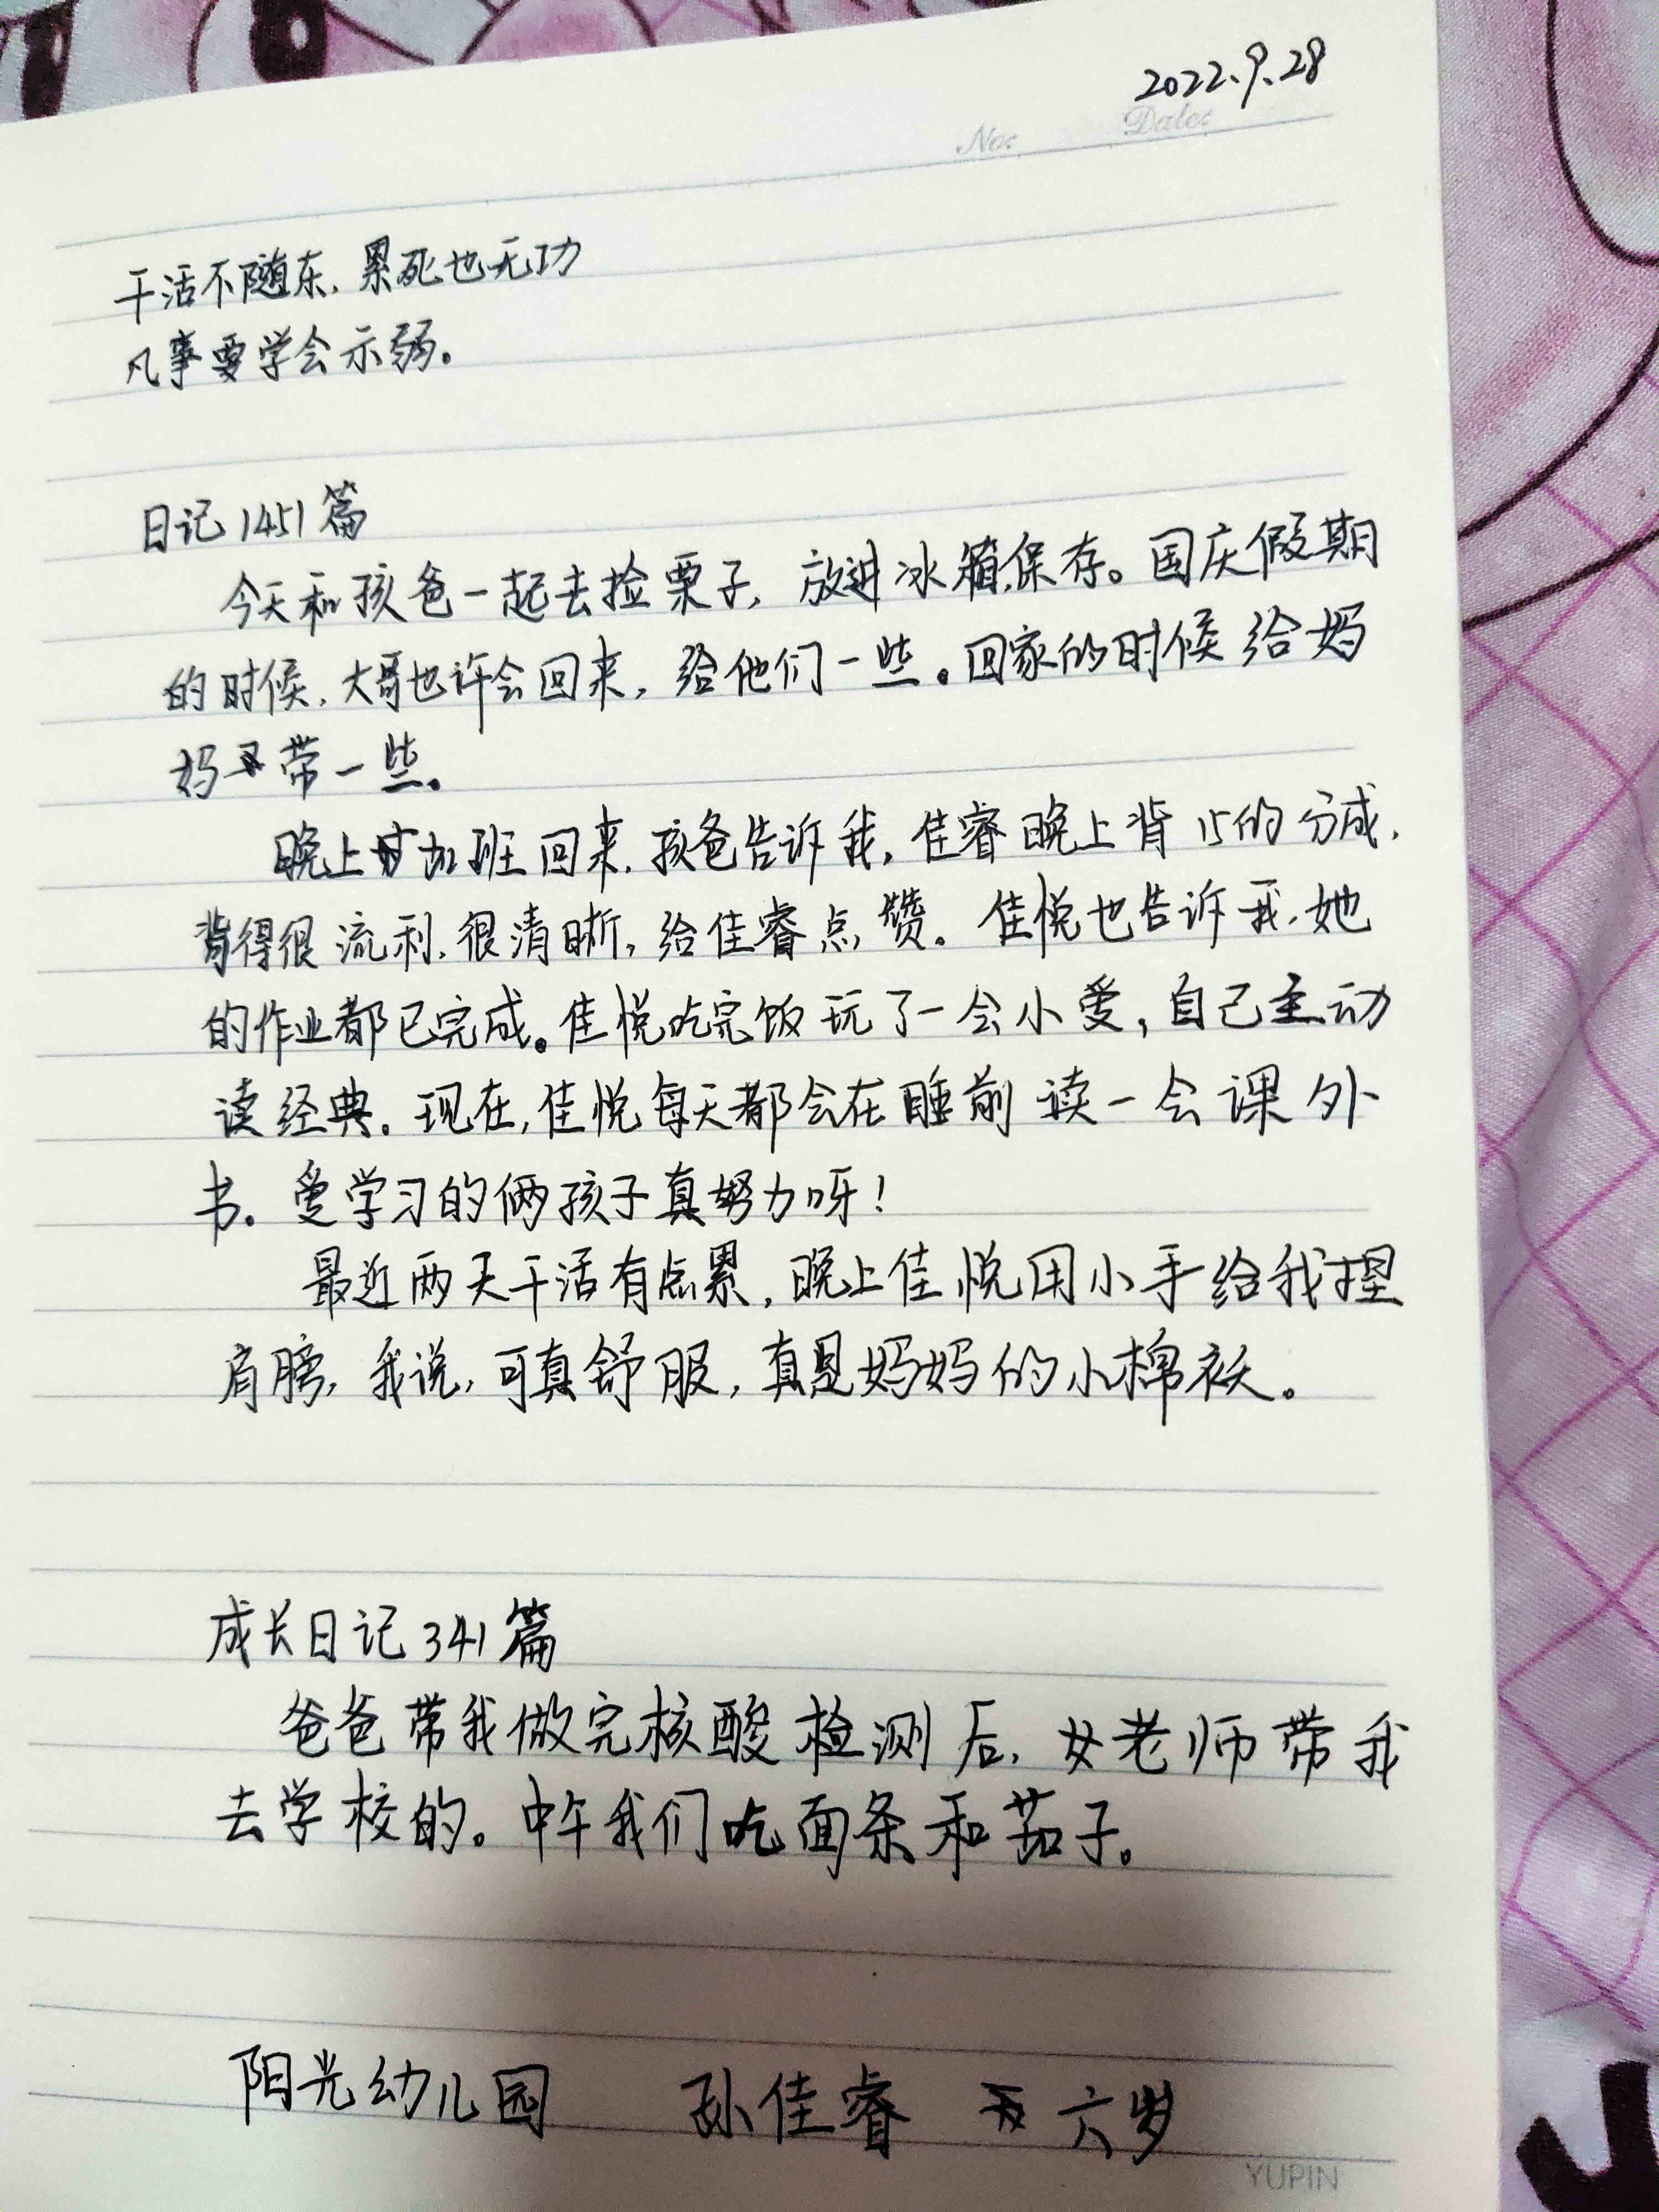 2022.9.28
No: Date:
干活不随东，累死也无功
凡事要学会示弱。
日记1451篇
今天和孩爸一起去捡栗子，放进冰箱保存。国庆假期
的时候，大哥也许会回来，给他们一些。回家的时候给妈
妈带一些。
晚上加班回来，孩爸告诉我，佳睿晚上背15的分成，
背得很流利，很清晰，给佳睿点赞。佳悦也告诉我，她
的作业都已完成。佳悦吃完饭玩了一会小爱，自己主动
读经典。现在，佳悦每天都会在睡前读一会课外
书。爱学习的俩孩子真努力呀！
最近两天干活有点累，晚上佳悦用小手给我捏
肩膀，我说，可真舒服，真是妈妈的小棉袄。
成长日记341篇
爸爸带我做完核酸检测后，女老师带我
去学校的。中午我们吃面条和茄子。
阳光幼儿园 孙佳睿 六岁
YUPIN